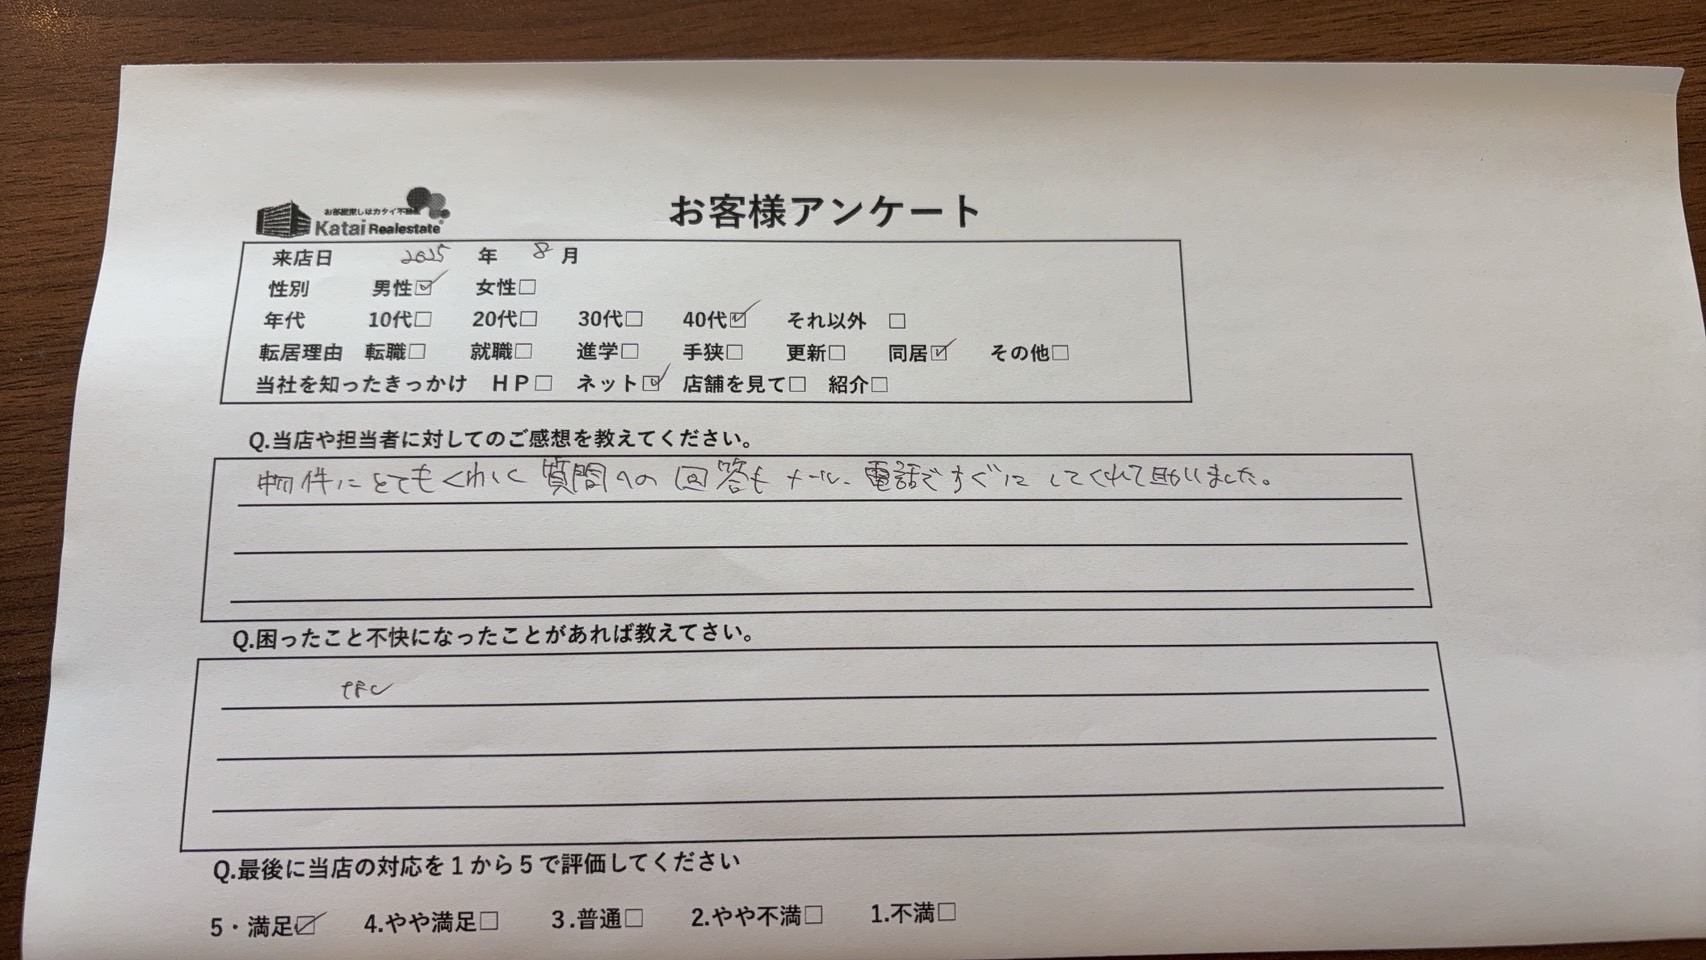 お部屋探しはカタイ不動産
Katai Realestate
お客様アンケート
来店日 2025 年 8 月
性別 男性☑ 女性□
年代 10代□ 20代□ 30代□ 40代☑ それ以外 □
転居理由 転職□ 就職□ 進学□ 手狭□ 更新□ 同居☑ その他□
当社を知ったきっかけ ＨＰ□ ネット☑ 店舗を見て□ 紹介□
Q.当店や担当者に対してのご感想を教えてください。
物件にとてもくわしく質問への回答もメール、電話ですぐにしてくれて助かりました。
Q.困ったこと不快になったことがあれば教えてさい。
特になし
Q.最後に当店の対応を１から５で評価してください
5・満足☑ 4.やや満足□ 3.普通□ 2.やや不満□ 1.不満□